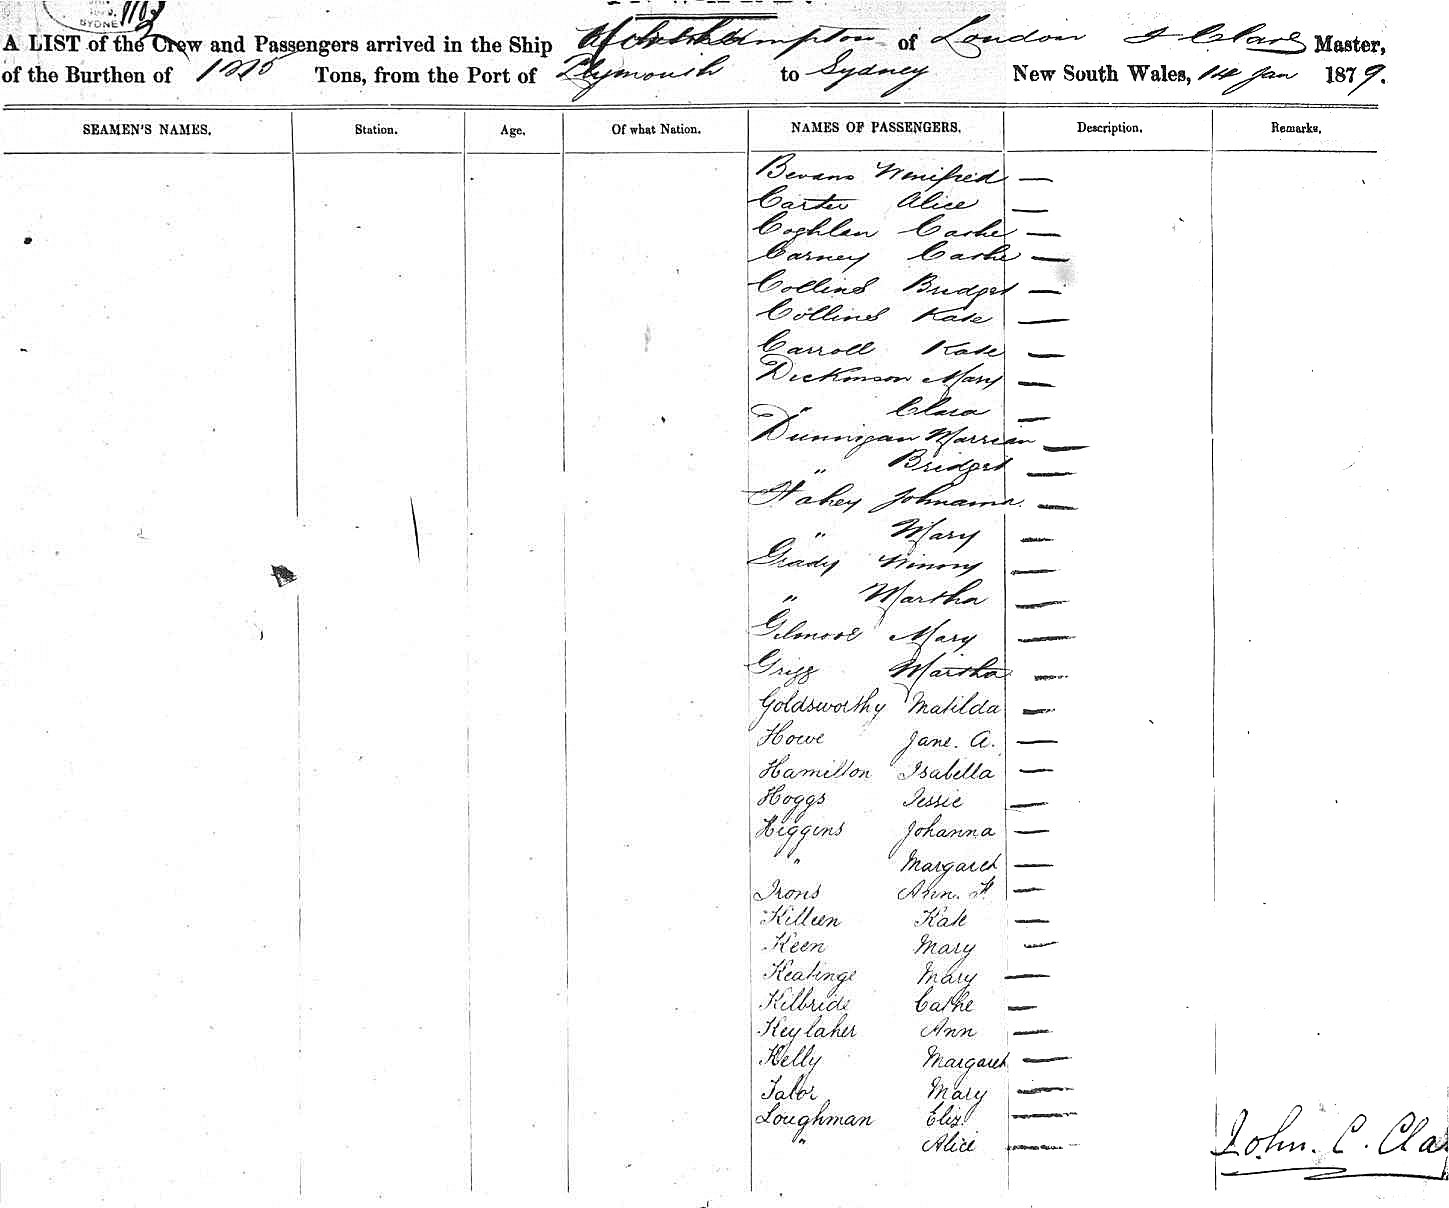 1163
SYDNE
A LIST of the Crew and Passengers arrived in the Ship Northampton of London J Clare Master,
of the Burthen of 1215 Tons, from the Port of Plymouth to Sydney New South Wales, 14 Jan 1879.
SEAMEN'S NAMES. Station. Age. Of what Nation. NAMES OF PASSENGERS. Description. Remarks.
Bevans Winifred —
Carter Alice —
Coghlan Cathe —
Carney Cathe —
Collins Bridget —
Collins Kate —
Carroll Kate —
Dickinson Mary —
" Clara —
Dunnigan Marrian —
" Bridget —
Fahey Johnanna —
" Mary —
Grady Winony —
" Martha —
Gilmore Mary —
Grigg Martha —
Goldsworthy Matilda —
Howe Jane. A. —
Hamilton Isabella —
Hoggs Jessie —
Higgins Johanna —
" Margaret —
Irons Ann. F. —
Killeen Kate —
Keen Mary —
Keatinge Mary —
Kilbride Cathe —
Keylaher Ann —
Kelly Margaret —
Talor Mary —
Loughman Eliz. —
" Alice —
John. C. Cla